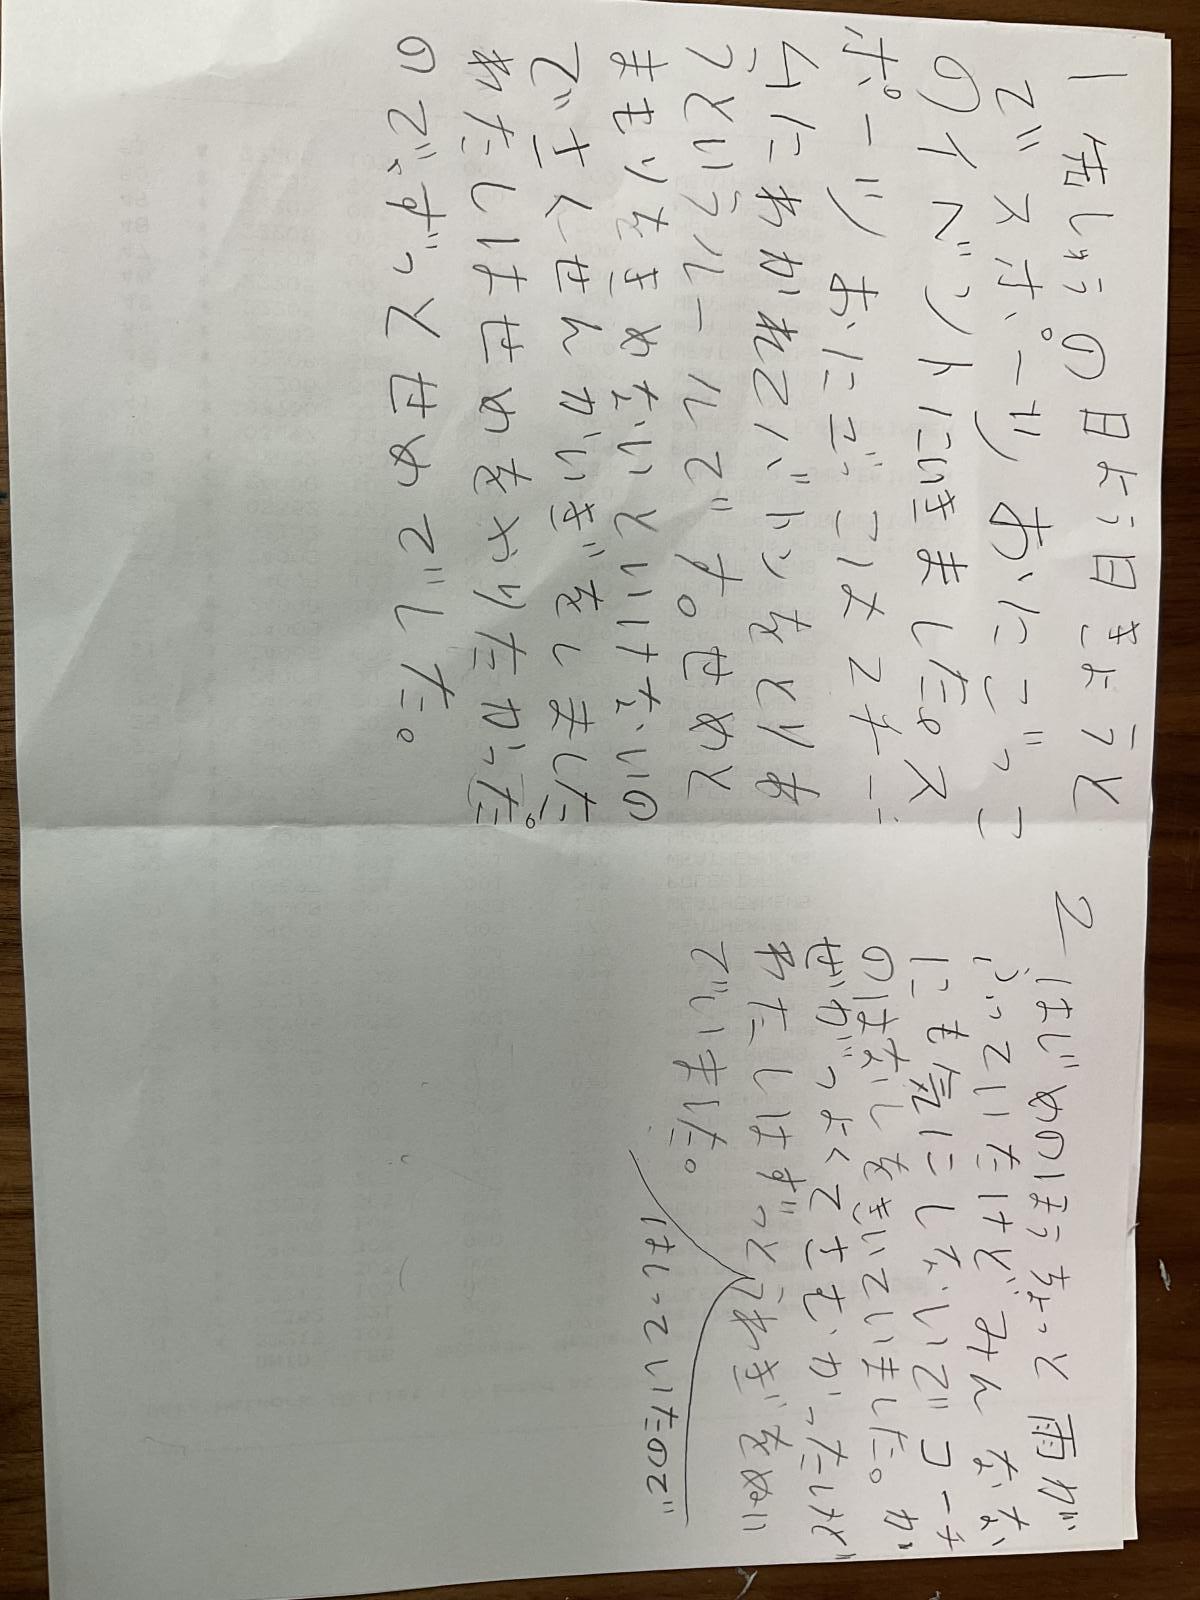 1 先しゅうの日よう日きょうと
でスポーツおにごっこ
のイベントにいきました。ス
ポーツおにごっこは2チー
ムにわかれてバトルをとりあ
うというルールです。せめと
まもりをきめないといけないの
でさくせんかいぎをしました。
わたしはせめをやりたかった
のでずっとせめでした。
2 はじめのほうちょっと雨が
ふっていたけどみんなな
にも気にしないでコーチ
のはなしをきいていました。か
ぜがつよくてさむかったけど
わたしはずっとうわぎをぬい
でいました。
はしっていたので